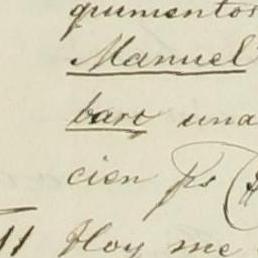 quinientos
Manuel
bart una
cien ps (
11 Hoy me